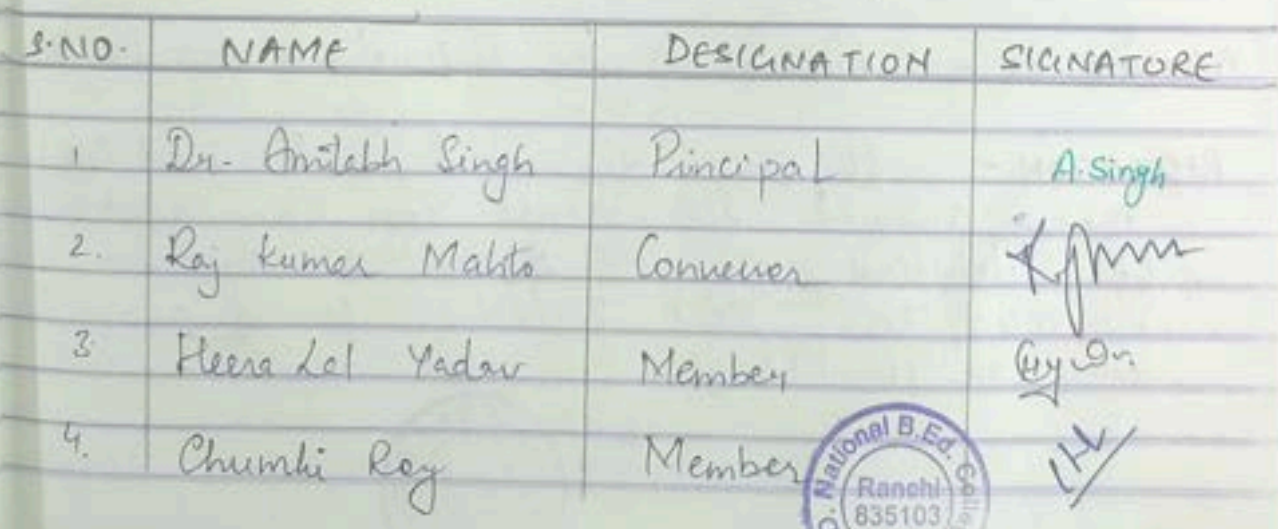 S.NO. NAME DESIGNATION SIGNATURE
1. Dr. Amitabh Singh Principal A.Singh
2. Raj Kumar Mahto Convenor
3 Heera Lal Yadav Member
4. Chumki Roy Member
National B.Ed.
Ranchi
835103